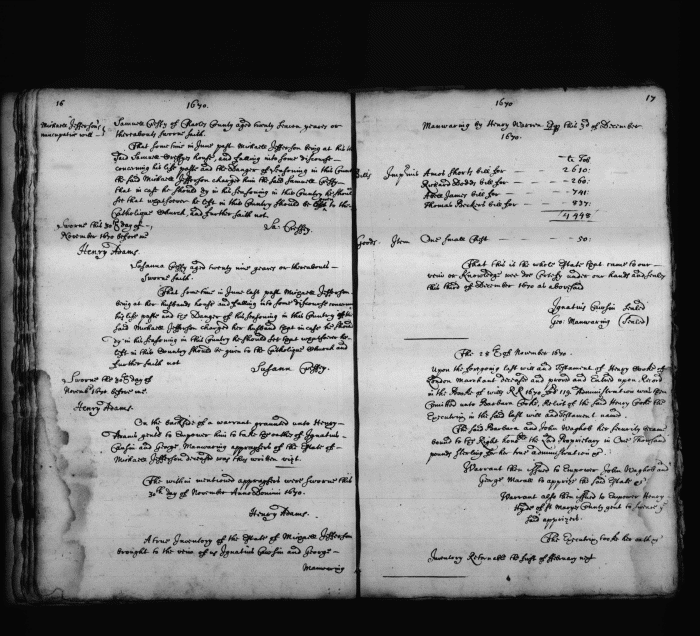 16
1670.
Michaell Jefferson's
nuncupative will
Samuell Cressy of Charles County aged twenty seaven yeares or
thereabouts sworne saith.
That sometime in June past Michaell Jefferson being at this
said Samuell Cressys house, and falling into some discourse
concerning his life past and the danger of seasoning in this Country
the said Michaell Jefferson charged him the said Samuell Cressy
that in case he should dy in his seasoning in this Country he should
that whatsoever he left in this Country should be to the
Catholique Church, and further saith not.
Sworne this 30th day of
November 1670 before me
Sa: Cressy.
Henry Adams.
Susanna Cressy aged twenty nine yeares or thereabouts
sworne saith.
That sometime in June last past Michaell Jefferson
being at her husbands house and falling into some discourse concerning
his life past and the danger of his seasoning in this Country the
said Michaell Jefferson charged her husband that in case he should
dy in his seasoning in this Country he should see that whatsoever he
left in this Country should be given to the Catholique Church and
further saith not
Susann Cressy.
Sworne the 30th day of
Novemb 1670 before me
Henry Adams.
On the backside of a warrant graunted unto Henry
Adams gent to empower him to take the oathes of Ignatius
Causin and George Manwaring appraysers of the Estate of
Michaell Jefferson deceased was thus written vizt.
The within mentioned appraysers were sworne this
30th day of November Anno Domini 1670.
Henry Adams.
A true Inventory of the Estate of Michaell Jefferson
brought to the view of us Ignatius Causin and George
Manwaring
1670
17
Manwaring by Henry Warren this 3d of December
1670.
lb Tob
Bills Imprimis Amos Shorts bill for 2610:
Richard Dodds bill for 260:
Abell James bill for 741:
Thomas Beckers bill for 837:
4448
Goods. Item One small Chest 50:
That this is the whole Estate that came to our
view or knowledge wee doe Certify under our hands and seales
this third of December 1670 as abovesaid
Ignatius Causin sealed
Geo: Manwaring (Sealed)
The 28th of November 1670.
Upon the foregoing last will and Testament of Henry Cooke of
London Marchant deceased and proved and Entred upon Record
in the booke of wills RR 1670 fol 119 Administration was then
Comitted unto Barbara Cooke, Relict of the said Henry Cooke the
Executrix in the said last will and Testament named.
The said Barbara and John Waghob her security became
bound to the Right honoble the Lord Proprietary in One Thousand
pounds sterling for her true administration &c.
Warrant then issued to Empower John Waghob and
George Marall to apprize the said Estate &c
Warrant also then issued to Empower Henry
Hyde of St Maryes County gent to sweare ye
said apprizers.
The Executrix tooke her oath &c
Inventory Returnable the first of ffebruary next